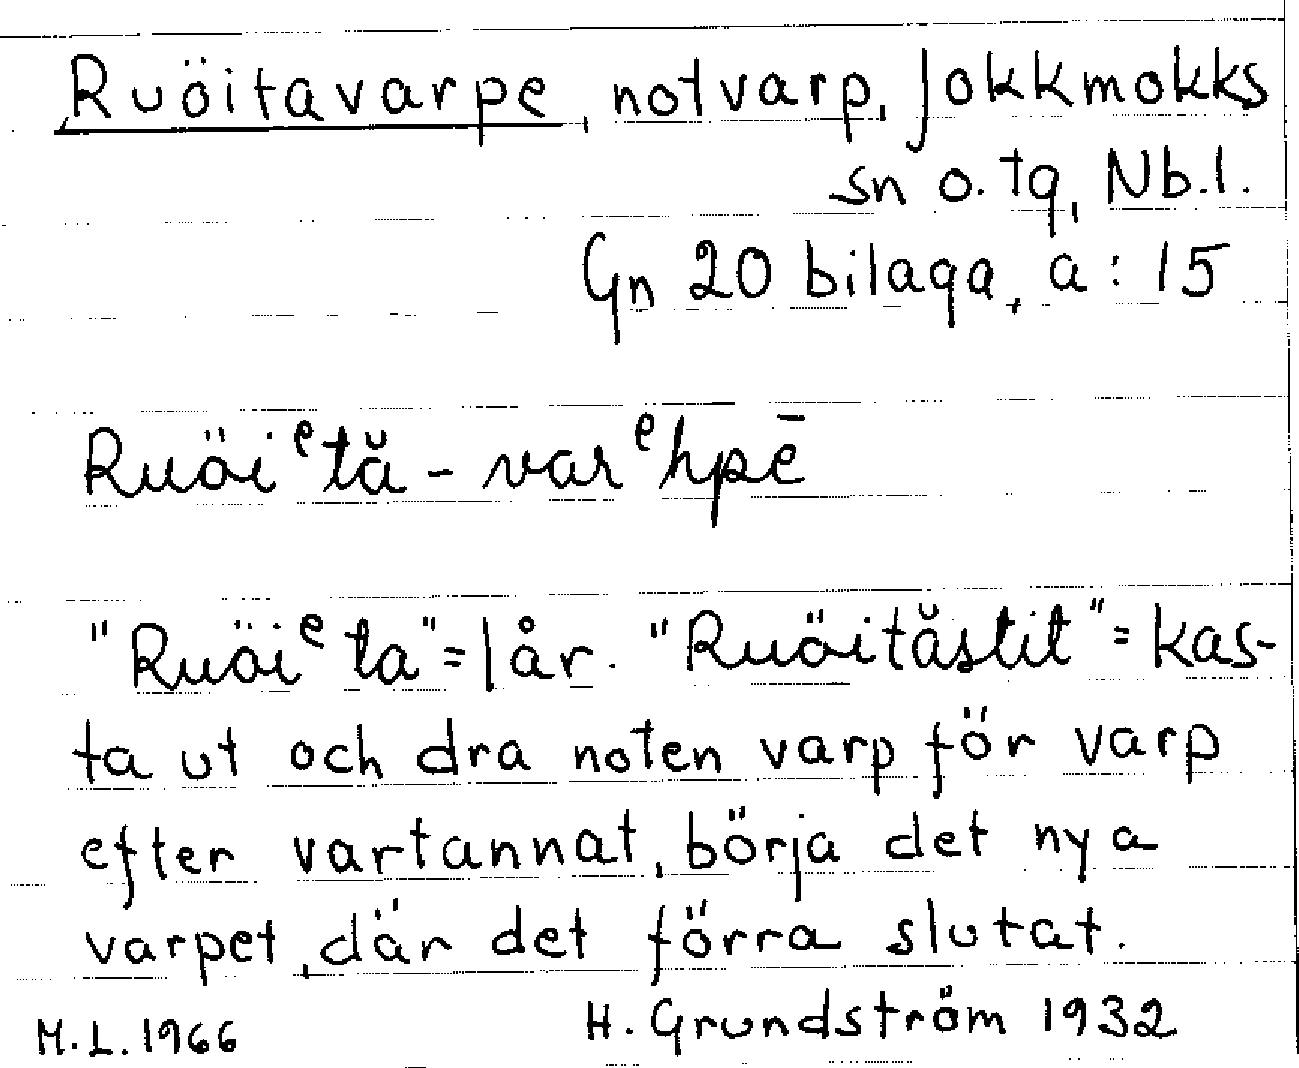 Ruöitavarpe, notvarp, Jokkmokks
sn o. tg, Nb.l.
Gn 20 bilaga, a: 15
Ruöiᵉtă-varᵉhpē
"Ruöiᵉta"=lår. "Ruöităstit"=kas-
ta ut och dra noten varp för varp
efter vartannat, börja det nya
varpet, där det förra slutat.
M.L. 1966 H. Grundström 1932